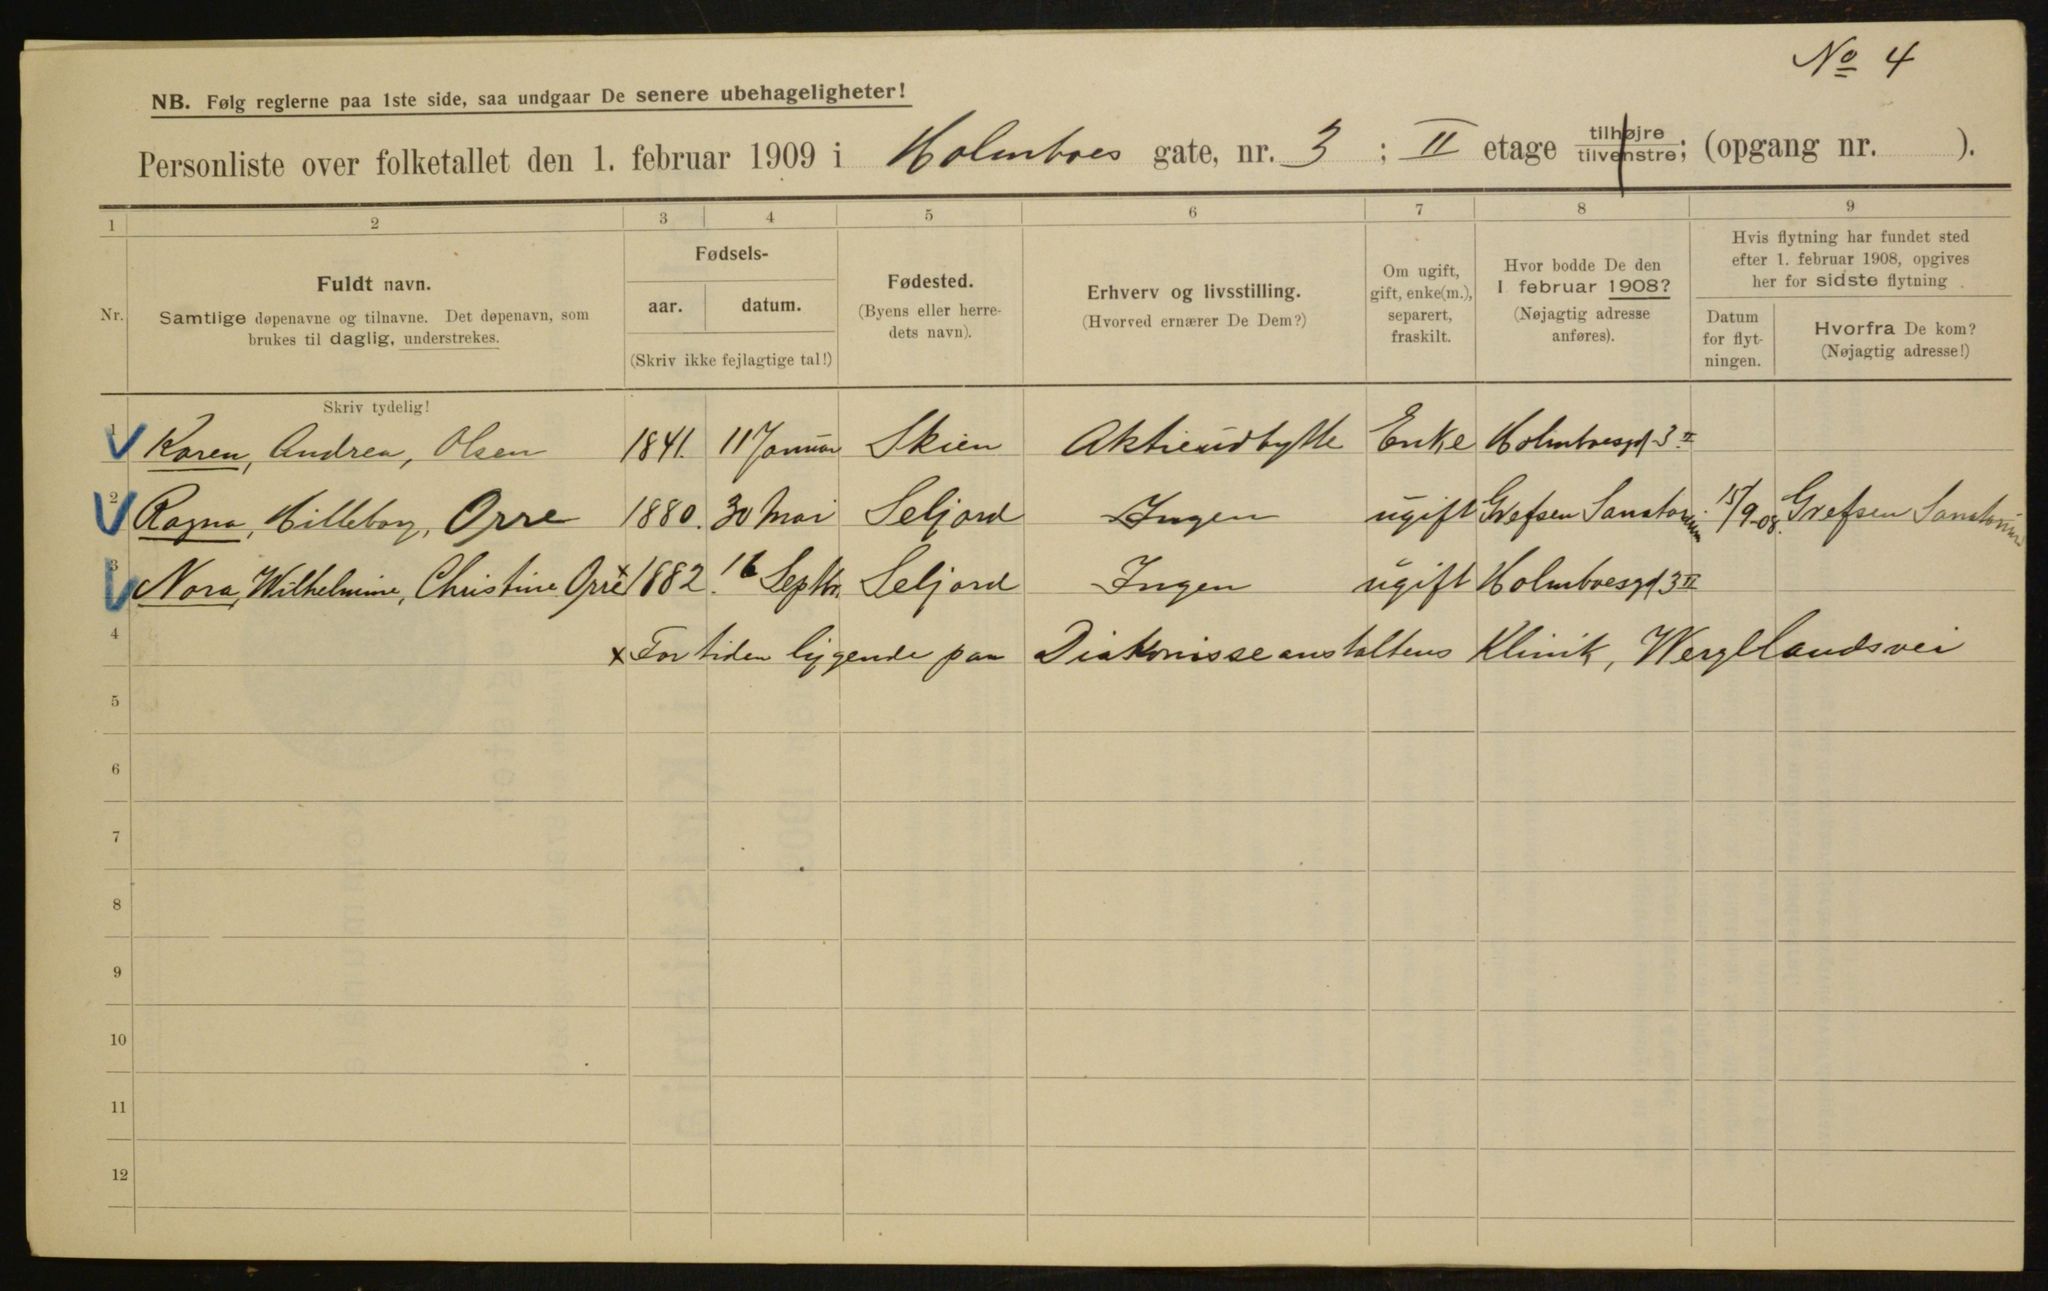 No 4
NB. Følg reglerne paa 1ste side, saa undgaar De senere ubehageligheter!
Personliste over folketallet den 1. februar 1909 i Holmboes gate, nr. 3 ; II etage tilhøjre tilvenstre; (opgang nr. ).
1 2 3 4 5 6 7 8 9
Nr.
Fuldt navn.
Samtlige døpenavne og tilnavne. Det døpenavn, som
brukes til daglig, understrekes.
Skriv tydelig!
Fødsels-
aar. datum.
(Skriv ikke fejlagtige tal!)
Fødested.
(Byens eller herre-
dets navn).
Erhverv og livsstilling.
(Hvorved ernærer De Dem?)
Om ugift,
gift, enke(m.),
separert,
fraskilt.
Hvor bodde De den
1 februar 1908?
(Nøjagtig adresse
anføres).
Hvis flytning har fundet sted
efter 1. februar 1908, opgives
her for sidste flytning
Datum
for flyt-
ningen.
Hvorfra De kom?
(Nøjagtig adresse!)
1 Karen, Andrea, Olsen 1841. 11 Januar Skien Aktieudbytte Enke Holmboesgd 3 II
2 Ragna, Hilleborg, Orre 1880. 30 Mai Seljord Ingen ugift Grefsen Sanatorium 15/9-08. Grefsen Sanatorium
3 Nora, Wilhelmine, Christine Orre x 1882. 16 Septbr. Seljord Ingen ugift Holmboesgd 3 II
4 x For tiden liggende paa Diakonisseanstaltens Klinik, Wergelandsvei
5
6
7
8
9
10
11
12